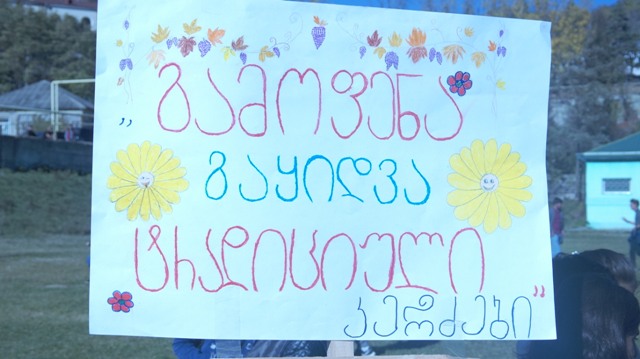 „გამოფენა
გაყიდვა
ტრადიციული”
კერძები